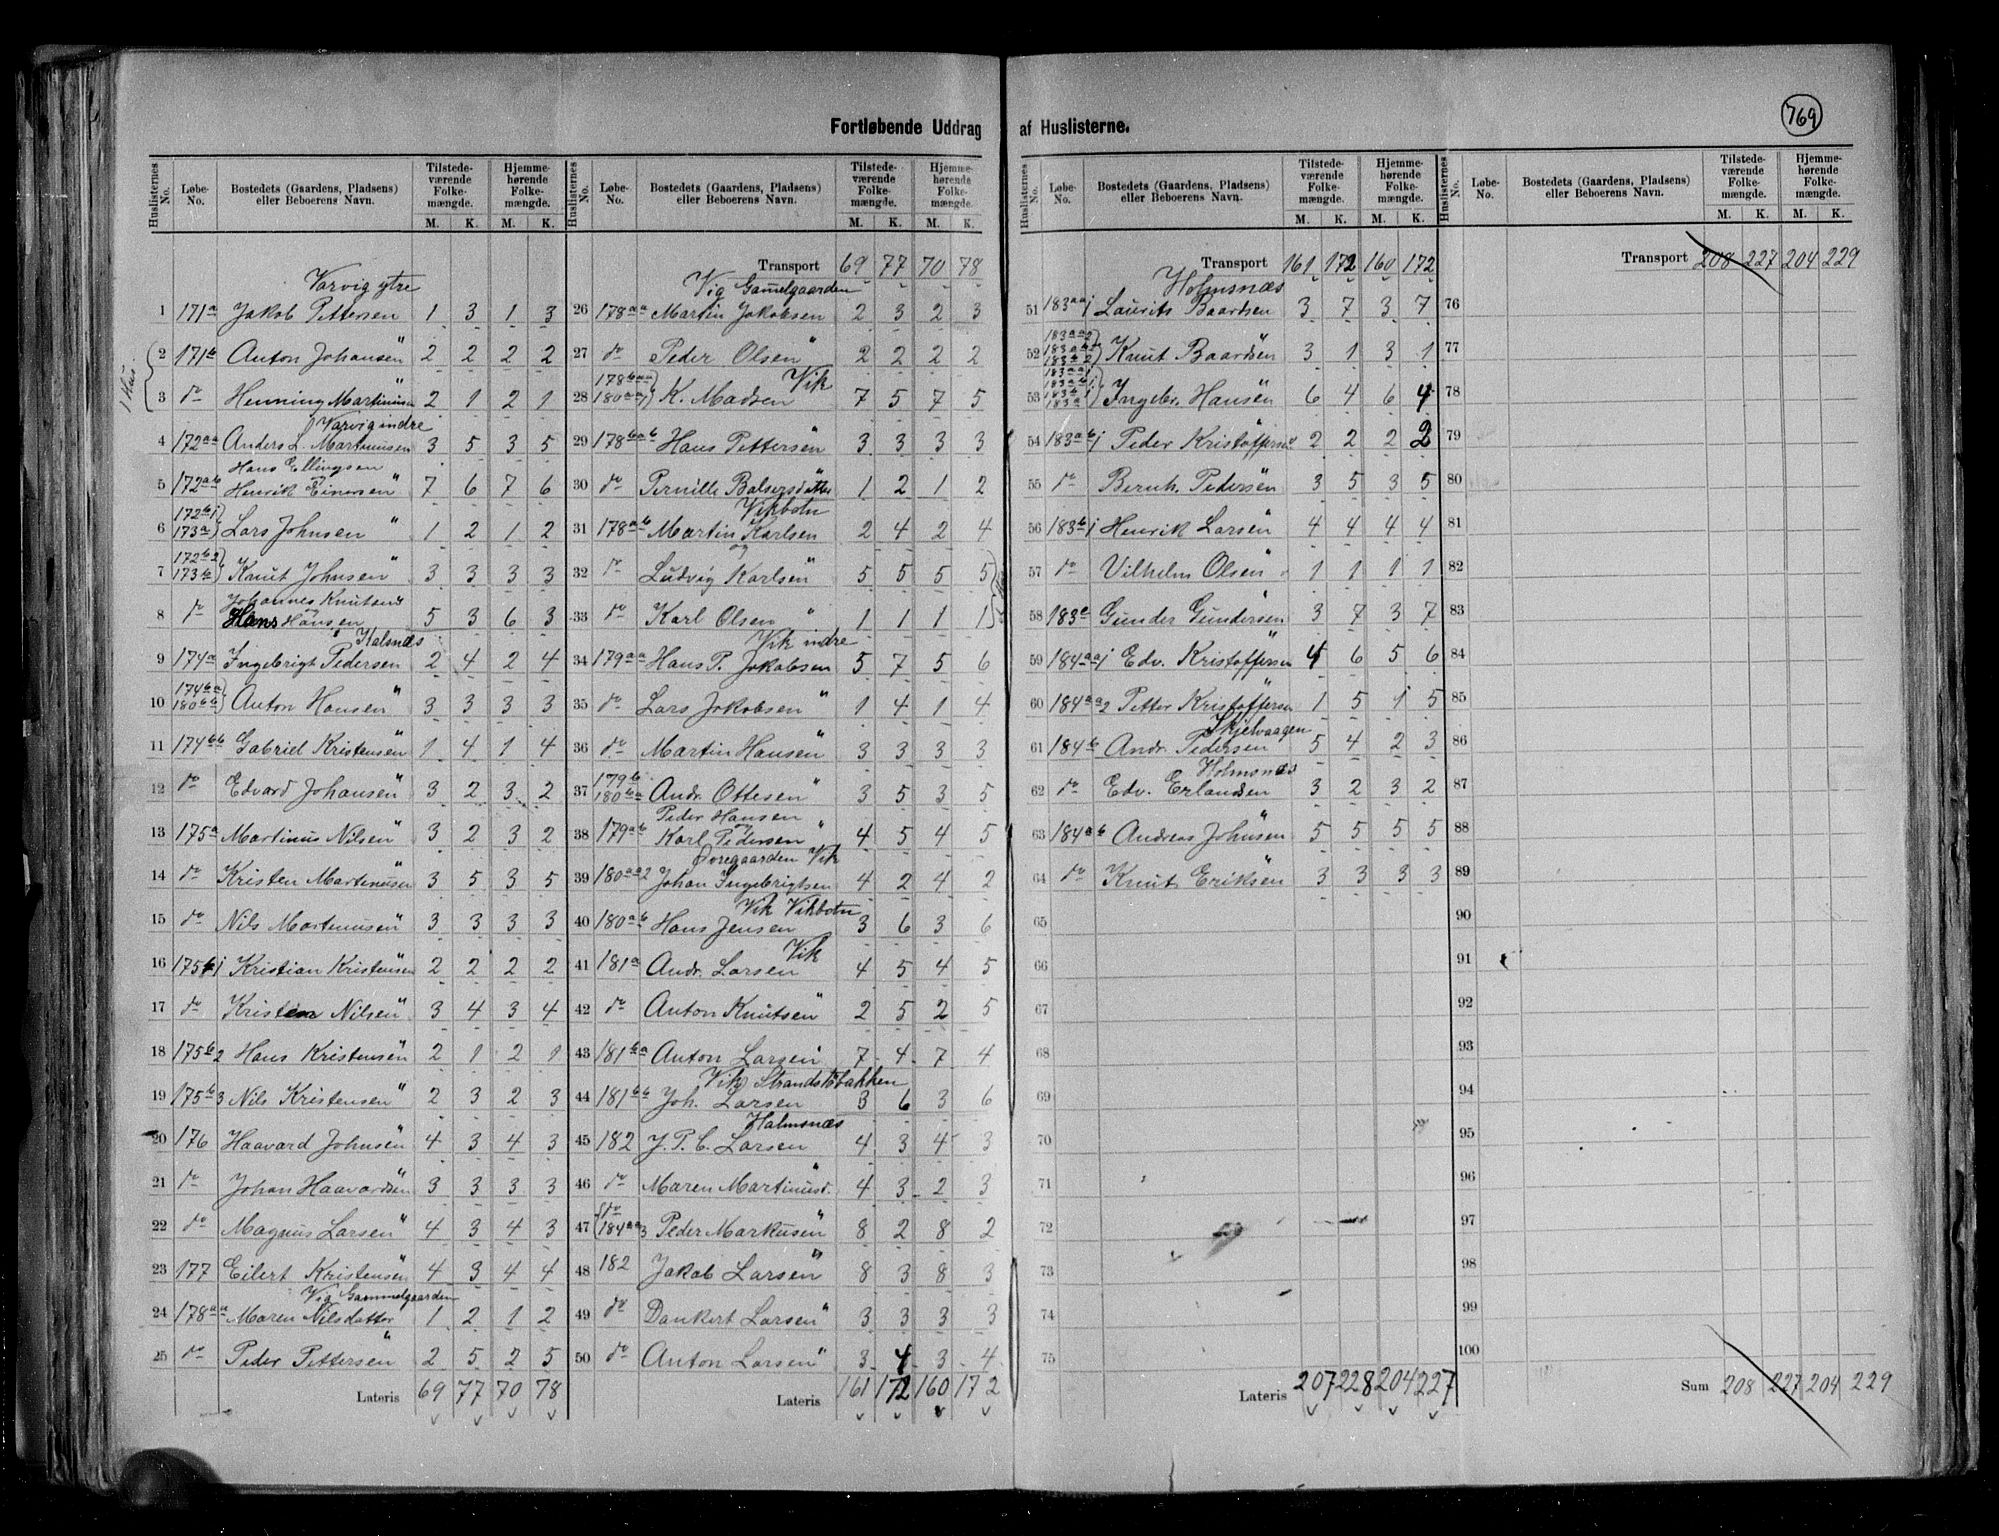 769
Fortløbende Uddrag af Huslisterne.
Huslisternes No. Løbe-No. Bostedets (Gaardens, Pladsens) eller Beboerens Navn. Tilstedeværende Folkemængde. M. K. Hjemmehørende Folkemængde. M. K.
Varvig ytre
1 171a Jakob Pettersen 1 3 1 3
1 Hus.
2 171b Anton Johansen " 2 2 2 2
3 do Henning Martinusen " 2 1 2 1
Varvig indre
4 172aa Anders L. Martinusen 3 5 3 5
Hans Ellingsen
5 172ab Henrik Einersen " 7 6 7 6
6 172b1 173a Lars Johnsen " 1 2 1 2
7 172b2 173b Knut Johnsen " 3 3 3 3
Johannes Knutsen
8 do Hans Hansen " 5 3 6 3
Halsnæs
9 174a Ingebrigt Pedersen 2 4 2 4
10 174ba 180bb Anton Hansen " 3 3 3 3
11 174bb Gabriel Kristensen " 1 4 1 4
12 do Edvard Johansen " 3 2 3 2
13 175a Martinus Nilsen " 3 2 3 2
14 do Kristen Martinusen " 3 5 3 5
15 do Nils Martinusen " 3 3 3 3
16 175b1 Kristian Kristensen " 2 2 2 2
17 do Kristen Nilsen " 3 4 3 4
18 175b2 Hans Kristensen " 2 1 2 1
19 175b3 Nils Kristensen " 2 3 2 3
20 176 Haavard Johnsen " 4 3 4 3
21 do Johan Haavardsen " 3 3 3 3
22 do Magnus Larsen " 4 3 4 3
23 177 Eilert Kristensen " 4 3 4 4
Vig Gammelgaarden
24 178aa Maren Nilsdatter 1 2 1 2
25 do Peder Pettersen " 2 5 2 5
Lateris 69 77 70 78
Huslisternes No. Løbe-No. Bostedets (Gaardens, Pladsens) eller Beboerens Navn. Tilstedeværende Folkemængde. M. K. Hjemmehørende Folkemængde. M. K.
Transport 69 77 70 78
Vig Gammelgaarden
26 178aa Martin Jakobsen 2 3 2 3
27 do Peder Olsen " 2 2 2 2
Vik
28 178baa 180aa1 K. Madsen 7 5 7 5
29 178bab Hans Pettersen " 3 3 3 3
30 do Pernille Balsersdatter " 1 2 1 2
Vikbotn
31 178ab Martin Karlsen 2 4 2 4
og
32 do Ludvig Karlsen " 5 5 5 5
33 do Karl Olsen " 1 1 1 1
Vik indre
34 179aa Hans P. Jakobsen 5 7 5 6
35 do Lars Jakobsen " 1 4 1 4
36 do Martin Hansen " 3 3 3 3
37 179b 180ba Andr. Ottesen " 3 5 3 5
Peder Hansen
og
38 179ab Karl Pedersen " 4 5 4 5
Øvregaarden Vik
39 180aa2 Johan Ingebrigtsen 4 2 4 2
Vik Vikbotn
40 180ab Hans Jensen 3 6 3 6
Vik
41 181a Andr. Larsen 4 5 4 5
42 do Anton Knutsen " 2 5 2 5
43 181ba Anton Larsen " 7 4 7 4
Vik Strandsbakken
44 181bb Joh. Larsen 3 6 3 6
Holmsnæs
45 182 J. P. C. Larsen 4 3 4 3
46 do Maren Martinusd. " 4 3 2 3
47 do 184aa3 Peder Markusen " 8 2 8 2
48 182 Jakob Larsen " 8 3 8 3
49 do Dankert Larsen " 3 3 3 3
50 do Anton Larsen " 3 4 3 4
Lateris 161 172 160 172
Huslisternes No. Løbe-No. Bostedets (Gaardens, Pladsens) eller Beboerens Navn. Tilstedeværende Folkemængde. M. K. Hjemmehørende Folkemængde. M. K.
Transport 161 172 160 172
Holmsnæs
51 183aa1 Laurits Baardsen 3 7 3 7
52 183aa2 183ab2 183b2 Knut Baardsen " 3 1 3 1
53 Ingebr. Hansen " 6 4 6 4
54 183ab1 Peder Kristoffersen " 2 2 2 2
55 do Bernh. Pedersen " 3 5 3 5
56 183b1 Henrik Larsen " 4 4 4 4
57 do Vilhelm Olsen " 1 1 1 1
58 183c Gunder Gundersen " 3 7 3 7
59 184aa1 Edv. Kristoffersen " 4 6 5 6
60 184aa2 Petter Kristoffersen " 1 5 1 5
Skjelvaagen
61 184b Andr. Pedersen 5 4 2 3
Holmsnæs
62 do Edv. Erlandsen 3 2 3 2
63 184ab Andreas Johnsen " 5 5 5 5
64 do Knut Eriksen " 3 3 3 3
65
66
67
68
69
70
71
72
73
74
75
Lateris 207 228 204 227
Huslisternes No. Løbe-No. Bostedets (Gaardens, Pladsens) eller Beboerens Navn. Tilstedeværende Folkemængde. M. K. Hjemmehørende Folkemængde. M. K.
Transport 208 227 204 229
76
77
78
79
80
81
82
83
84
85
86
87
88
89
90
91
92
93
94
95
96
97
98
99
100
Sum 208 227 204 229